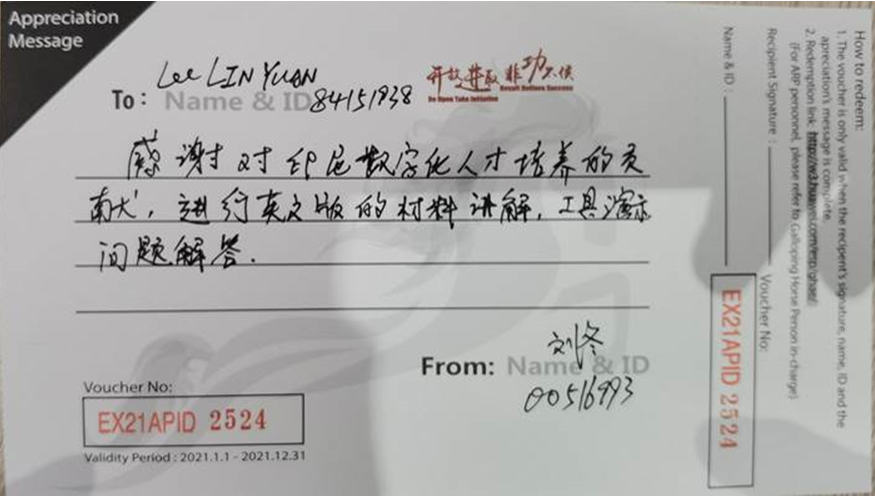 Appreciation
Message
Lee LIN YUAN
To: Name & ID 84151938
开放进取 非功不侯
Be Open Take Initiative Result Defines Success
感谢对印尼数字化人才培养的贡
献,进行英文版的材料讲解,工具演示
问题解答.
From: Name & ID
刘冬
00516993
Voucher No:
EX21APID 2524
Validity Period : 2021.1.1 - 2021.12.31
How to redeem:
1. The voucher is only valid when the recipent's signature, name, ID and the
apreciation's message is complete.
2. Redemption link: http://w3.huawei.com/resp/ghae/
(For ARP personnel, please refer to Galloping Horse Person in-charge)
Recipient Signature :
Voucher No:
Name & ID :
EX21APID 2524